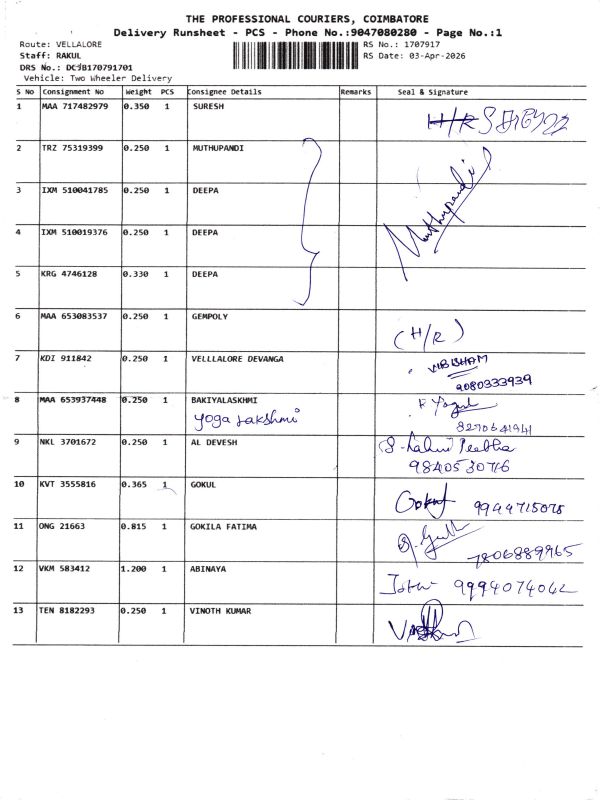 THE PROFESSIONAL COURIERS, COIMBATORE
Delivery Runsheet - PCS - Phone No.:9047080280 - Page No.:1
Route: VELLALORE RS No.: 1707917
Staff: RAKUL RS Date: 03-Apr-2026
DRS No.: DCJB170791701
Vehicle: Two Wheeler Delivery
S No Consignment No Weight PCS Consignee Details Remarks Seal & Signature
1 MAA 717482979 0.350 1 SURESH H/R
2 TRZ 75319399 0.250 1 MUTHUPANDI Muthupandi
3 IXM 510041785 0.250 1 DEEPA
4 IXM 510019376 0.250 1 DEEPA
5 KRG 4746128 0.330 1 DEEPA
6 MAA 653083537 0.250 1 GEMPOLY (H/R)
7 KDI 911842 0.250 1 VELLLALORE DEVANGA
9080333939
8 MAA 653937448 0.250 1 BAKIYALASKHMI
yoga Lakshmi 8270641941
9 NKL 3701672 0.250 1 AL DEVESH
9840530716
10 KVT 3555816 0.365 1 GOKUL Gokul 9944715078
11 ONG 21663 0.815 1 GOKILA FATIMA
7806889965
12 VKM 583412 1.200 1 ABINAYA 9994074042
13 TEN 8182293 0.250 1 VINOTH KUMAR